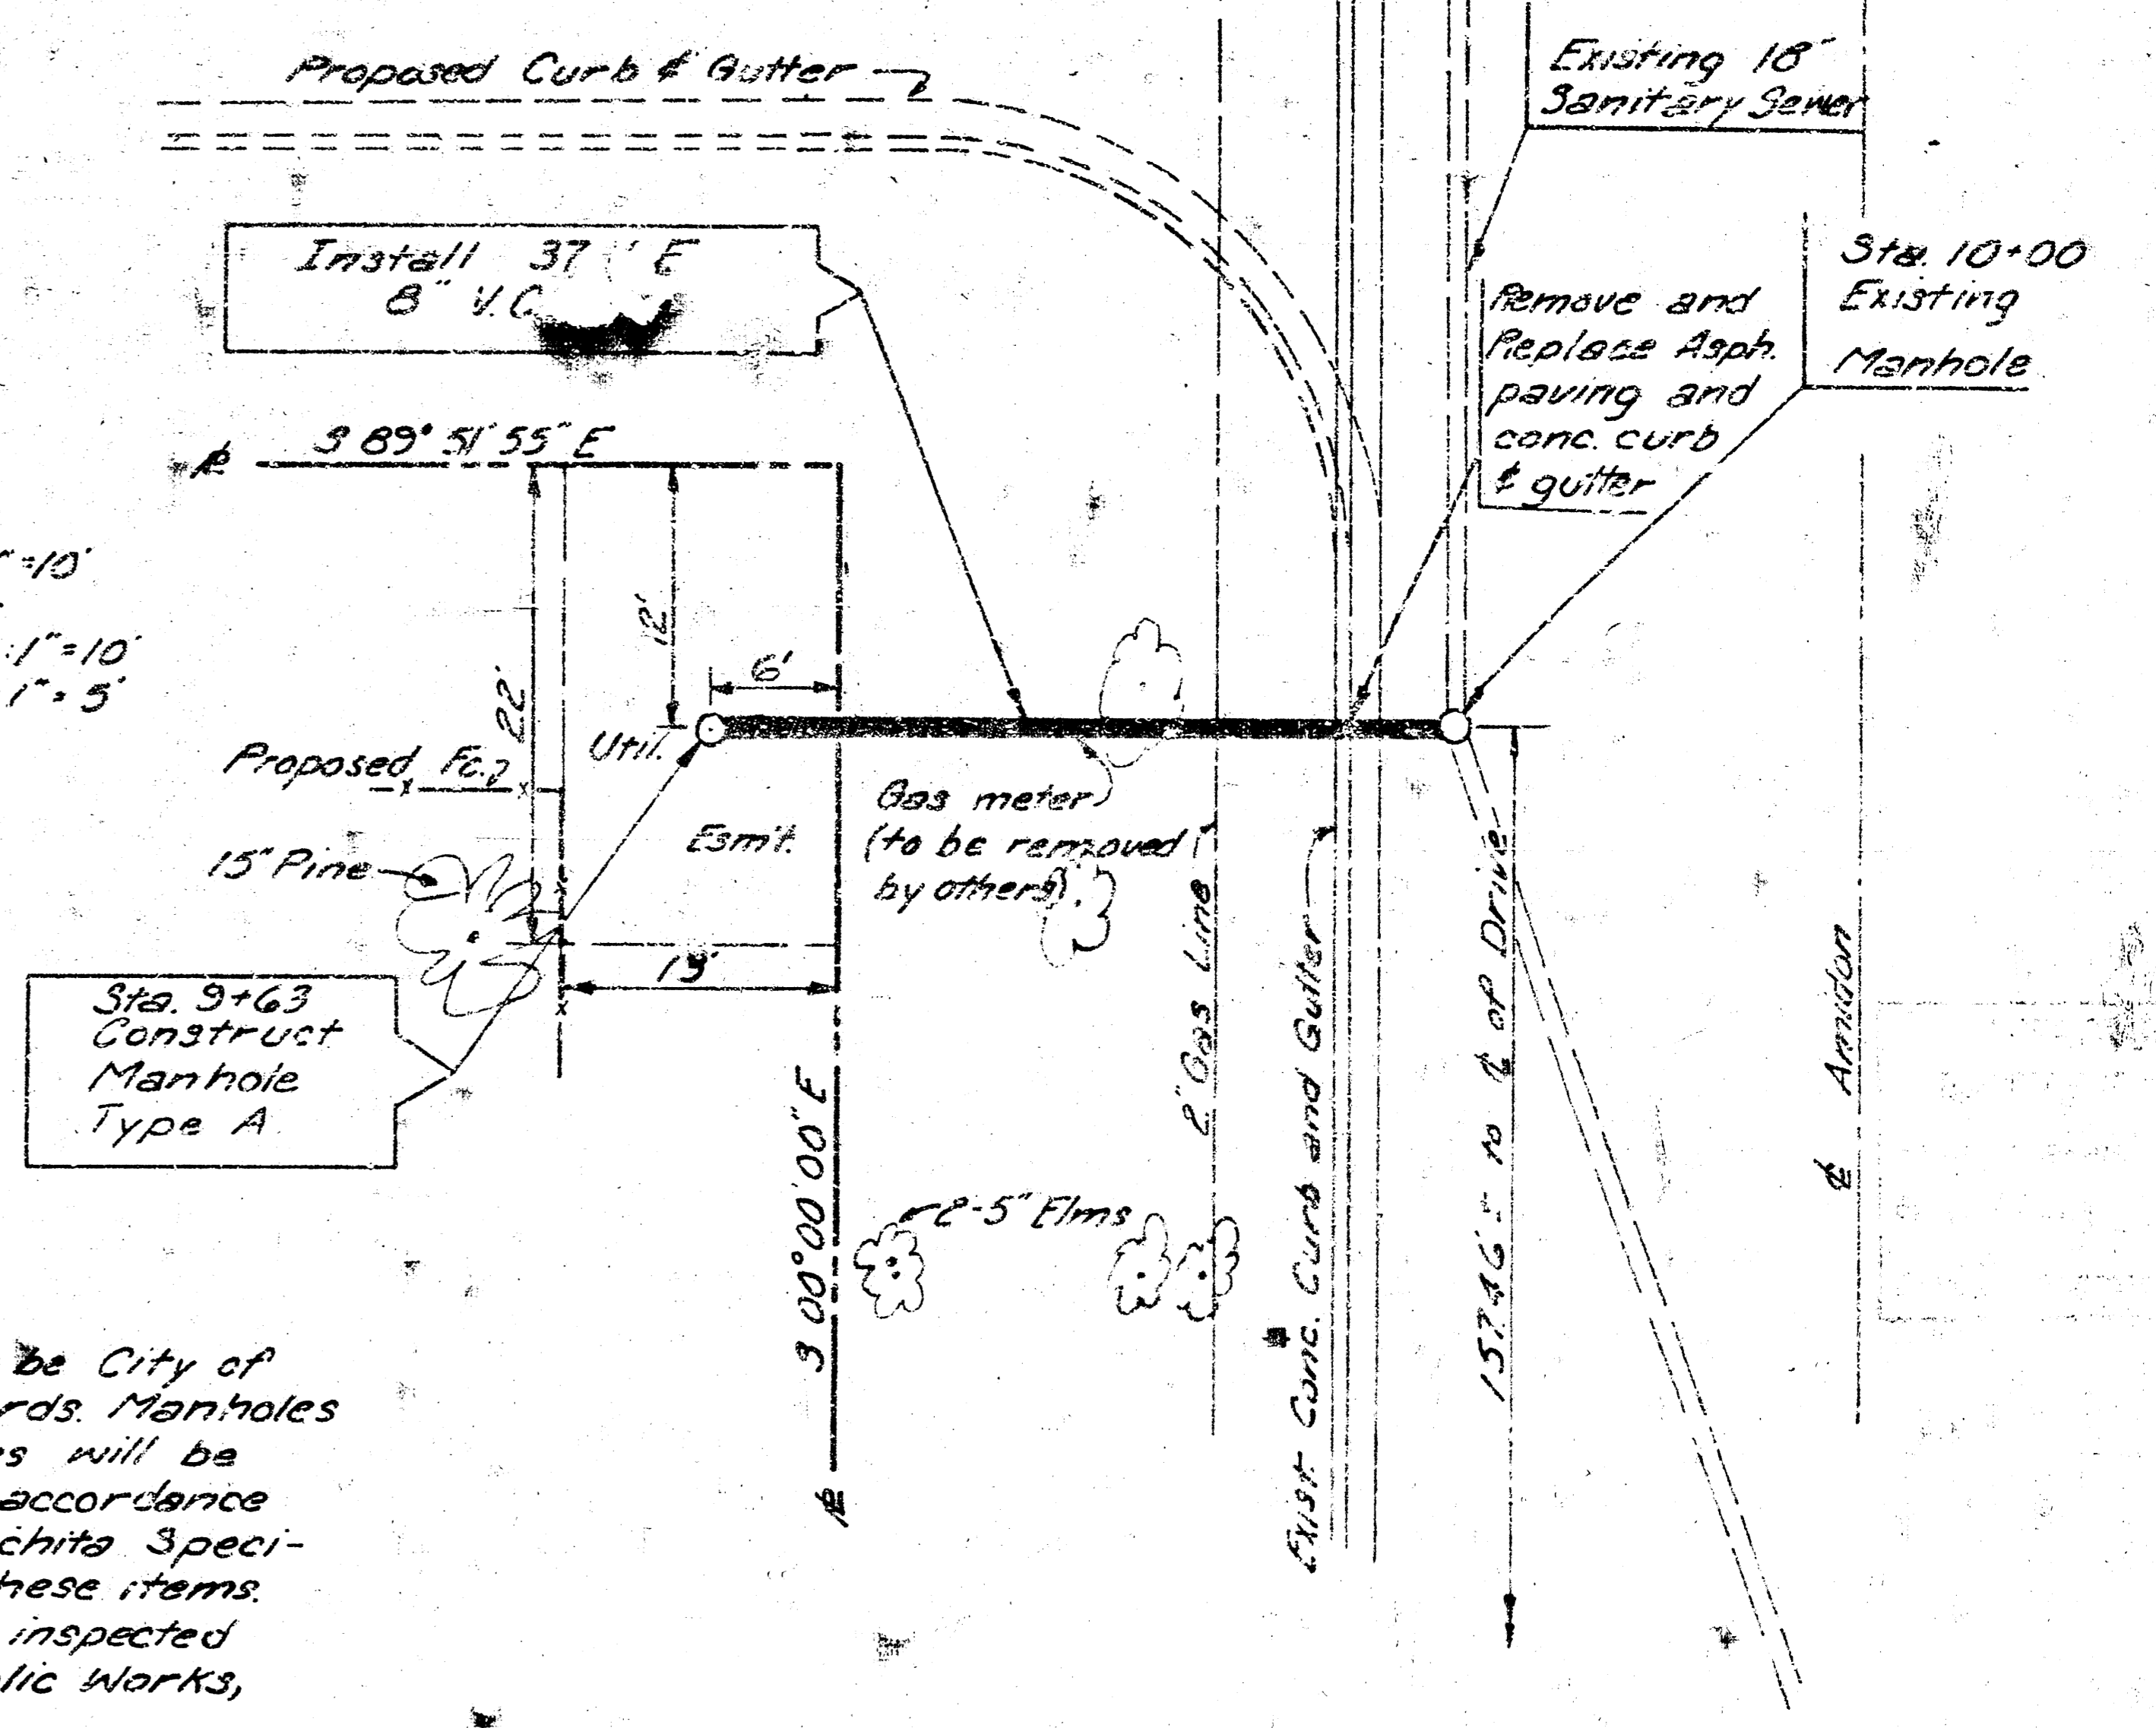 Proposed Curb & Gutter
Existing 18"
Sanitary Sewer
Install 37 ' E
8" V.C.
Remove and
Replace Asph.
paving and
conc. curb
& gutter
Sta. 10+00
Existing
Manhole
S 89° 51' 55" E
"=10'
:1"=10'
1"=5'
12'
6'
22'
Util.
Esm't.
Proposed Fc.
15" Pine
13'
Gas meter
(to be removed
by others)
Sta. 9+63
Construct
Manhole
Type A
2" Gas Line
Exist. Conc. Curb and Gutter
157.46' ± to ℄ of Drive
℄ Amidon
S 00° 00' 00" E
2-5" Elms
be City of
rds. Manholes
es will be
accordance
chita Speci-
hese items.
inspected
lic Works,